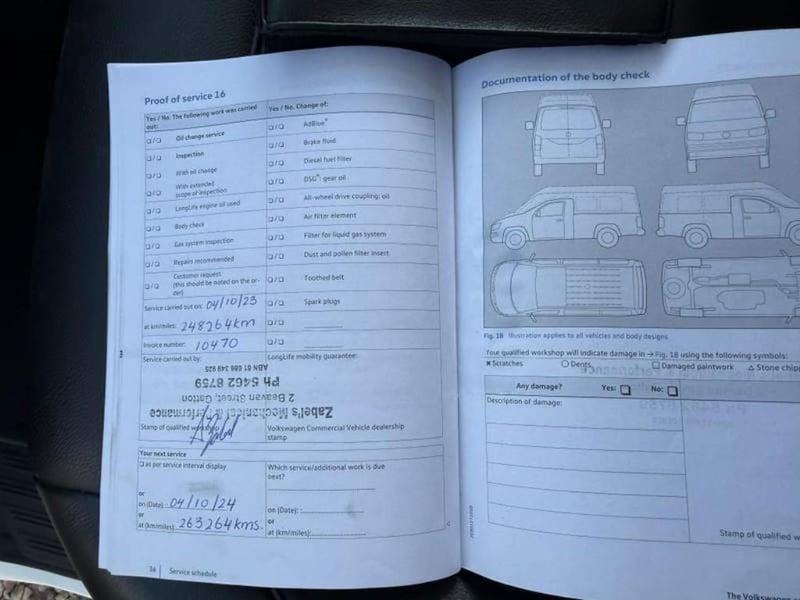 Proof of service 16
Yes / No. The following work was carried out:
Yes / No. Change of:
Oil change service
AdBlue®
Inspection
Brake fluid
With oil change
Diesel fuel filter
With extended scope of inspection
DSG®: gear oil
LongLife engine oil used
All-wheel drive coupling: oil
Body check
Air filter element
Gas system inspection
Filter for liquid gas system
Repairs recommended
Dust and pollen filter insert
Customer request (this should be noted on the order)
Toothed belt
Service carried out on: 04/10/23
Spark plugs
at km/miles: 248264km
Invoice number: 10470
Service carried out by:
LongLife mobility guarantee:
Zabel's Mechanical & Performance
2 Beavan Street, Gatton
Ph 5462 8759
ABN 61 686 349 925
Stamp of qualified workshop
Volkswagen Commercial Vehicle dealership stamp
Your next service
as per service interval display
Which service/additional work is due next?
or
on (Date): 04/10/24
on (Date):
or
or
at (km/miles): 263264kms.
at (km/miles):
36 Service schedule
Documentation of the body check
Fig. 18 Illustration applies to all vehicles and body designs
Your qualified workshop will indicate damage in → Fig. 18 using the following symbols:
× Scratches
○ Dents
□ Damaged paintwork
△ Stone chipp
Any damage?
Yes:
No:
Description of damage:
Stamp of qualified w
The Volkswagen